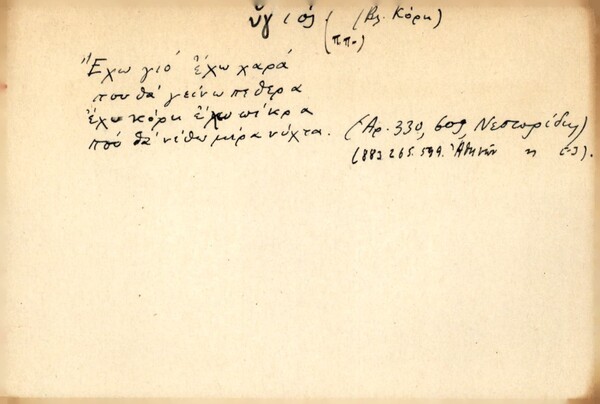 ὕγιός (Βλ. Κόρη)
(ππ.)
"Ἔχω γιό ἔχω χαρά
που θα' γείνω πεθερα
ἔχω κόρη ἔχω πίκρα
πού θα' νίθω μέρα νύχτα. (Αρ. 330, 609, Νεστορίδης)
(883 265. 599. Ἀθηνῶν